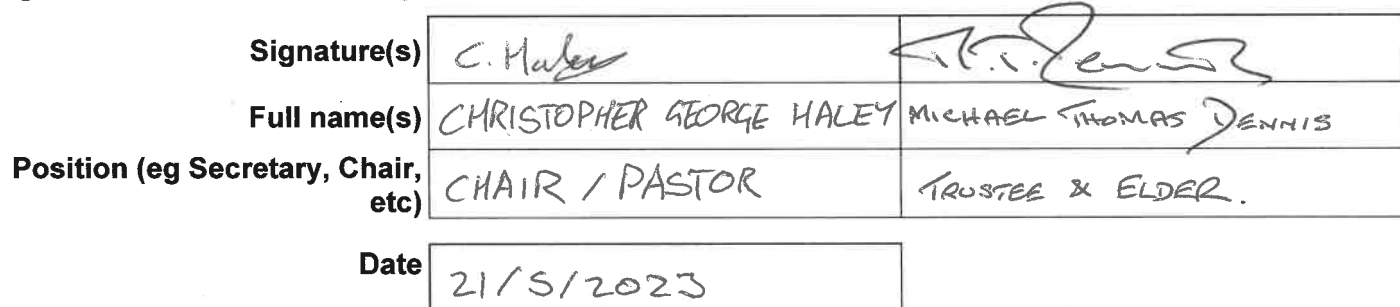 Signature(s) C. Haley
Full name(s) CHRISTOPHER GEORGE HALEY MICHAEL THOMAS DENNIS
Position (eg Secretary, Chair, etc) CHAIR / PASTOR TRUSTEE & ELDER.
Date 21/5/2023